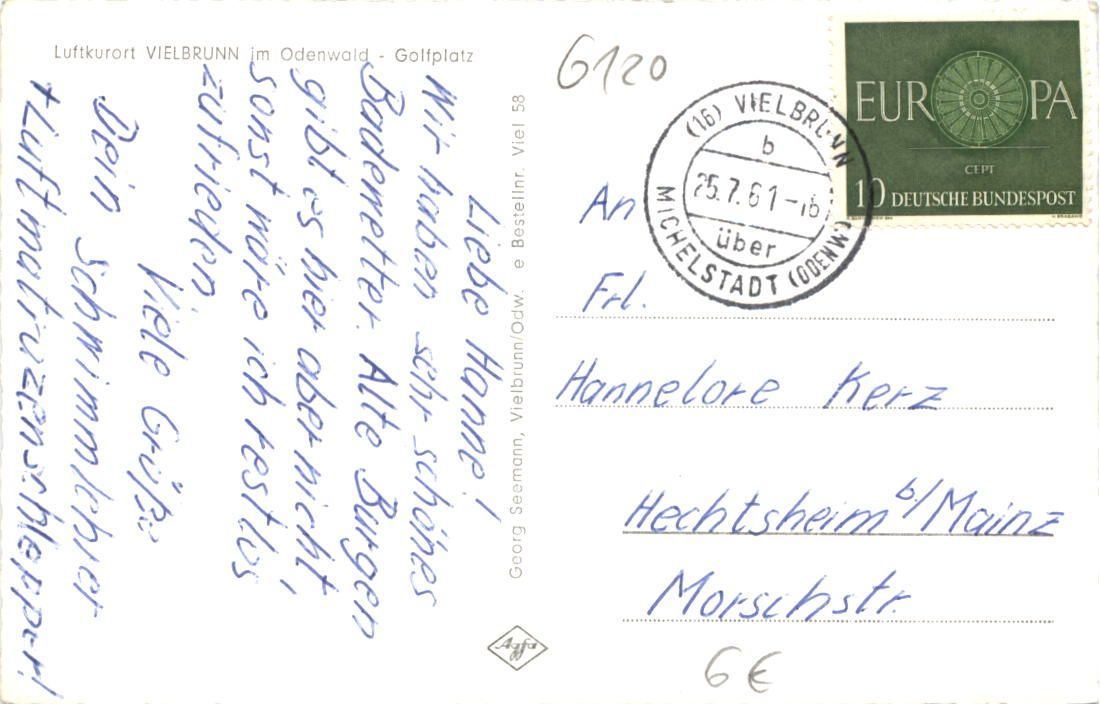 Luftkurort VIELBRUNN im Odenwald - Golfplatz
Liebe Hanne!
Wir haben sehr schönes
Badewetter. Alte Burgen
gibt es hier aber nicht,
sonst wäre ich restlos
zufrieden.
Viele Grüße
Dein Schwimmlehrer
+Luftmatrazenschlepper!
Georg Seemann, Vielbrunn/Odw. e Bestellnr. Viel 58
Agfa
6120
(16) VIELBRUNN
b
25.7.61-16
über
MICHELSTADT (ODENW)
EUROPA
CEPT
10 DEUTSCHE BUNDESPOST
An
Frl.
Hannelore Kerz
Hechtsheim b/Mainz
Morschstr.
6€